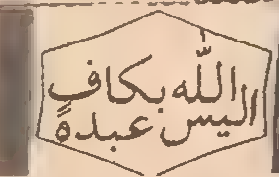 الله بكافٍ
اليس عبدهٗ